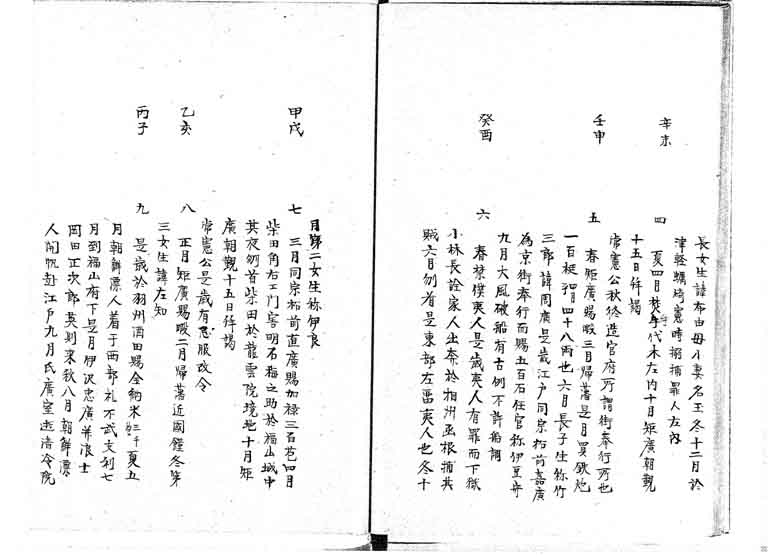 長女生諱布由母小妻名玉冬十二月於
津軽蠣崎憲時搦捕罪人左內
辛未
四 夏四月 代木左內十月矩廣朝覲
十五日拜謁
常憲公秋終造官府所謂街奉行所也
壬申
五 春矩廣賜暇三月歸藩是月買鉄炮
一百梃 四十八両也六月長子生称竹
三郎諱周廣是歳江戶同宗松前嘉廣
為京街奉行而賜五百石任官称伊豆守
九月大風破船有古例不許船調
癸酉
六 春禁僕夷人是歳夷人有罪而下獄
小林長詮家人出奔於相州函根捕其
賊六月刎者是東部左 夷人也冬十
月第二女生称伊良
甲戌
七 三月同宗松前直廣賜加禄三百苞四月
柴田角右エ門害明石梅之助於福山城中
其夜刎首柴田於龍雲院境地十月矩
廣朝覲十五日拜謁
常憲公是歳有 服改令
乙亥
八 正月矩廣賜暇二月歸藩近國饉冬第
三女生諱左知
丙子
九 是歳於羽州酒田賜金納米 三千夏五
月朝鮮漂人着于西部礼不武文利七
月到福山府下是月伊沢忠廣并浪士
岡田正次郎 到来秋八月朝鮮漂
人開帆赴江戶九月氏廣室逝清令院